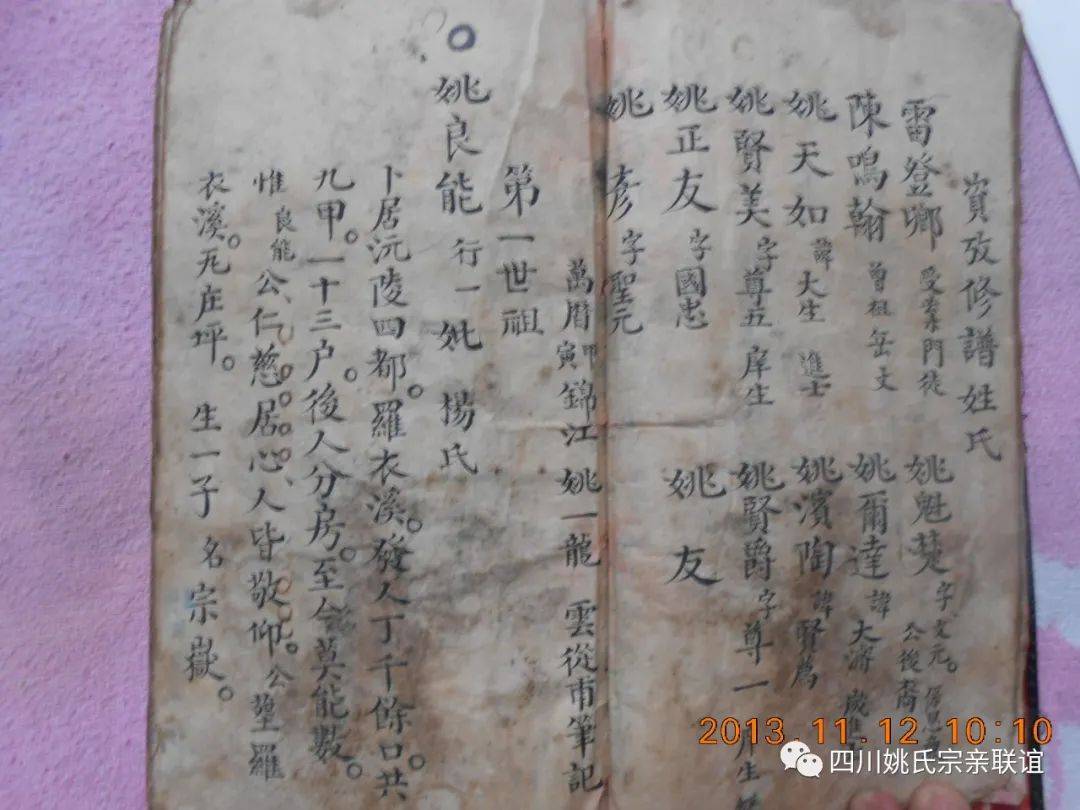 資攷修譜姓氏
雷登卿 受業門徒 姚魁楚 字文元。 公後裔
陳鳴翰 曾祖岳丈 姚爾達 諱大濟 歲進
姚天如 諱大生 進士 姚濱陶 諱賢為
姚賢美 字尊五 庠生 姚賢爵 字尊一 庠生
姚正友 字國忠 姚友
姚彥 字聖元
萬曆甲寅錦江姚一龍 雲從甫筆記
第一世祖
姚良能 行一 妣 楊氏
卜居沅陵四都。羅衣溪。發人丁千餘口共
九甲。一十三户。後人分房。至今莫能數。
惟良能公仁慈居心人皆敬仰。公塟羅
衣溪。瓦庄坪。 生一子 名宗嶽。
2013.11.12 10:10
四川姚氏宗亲联谊